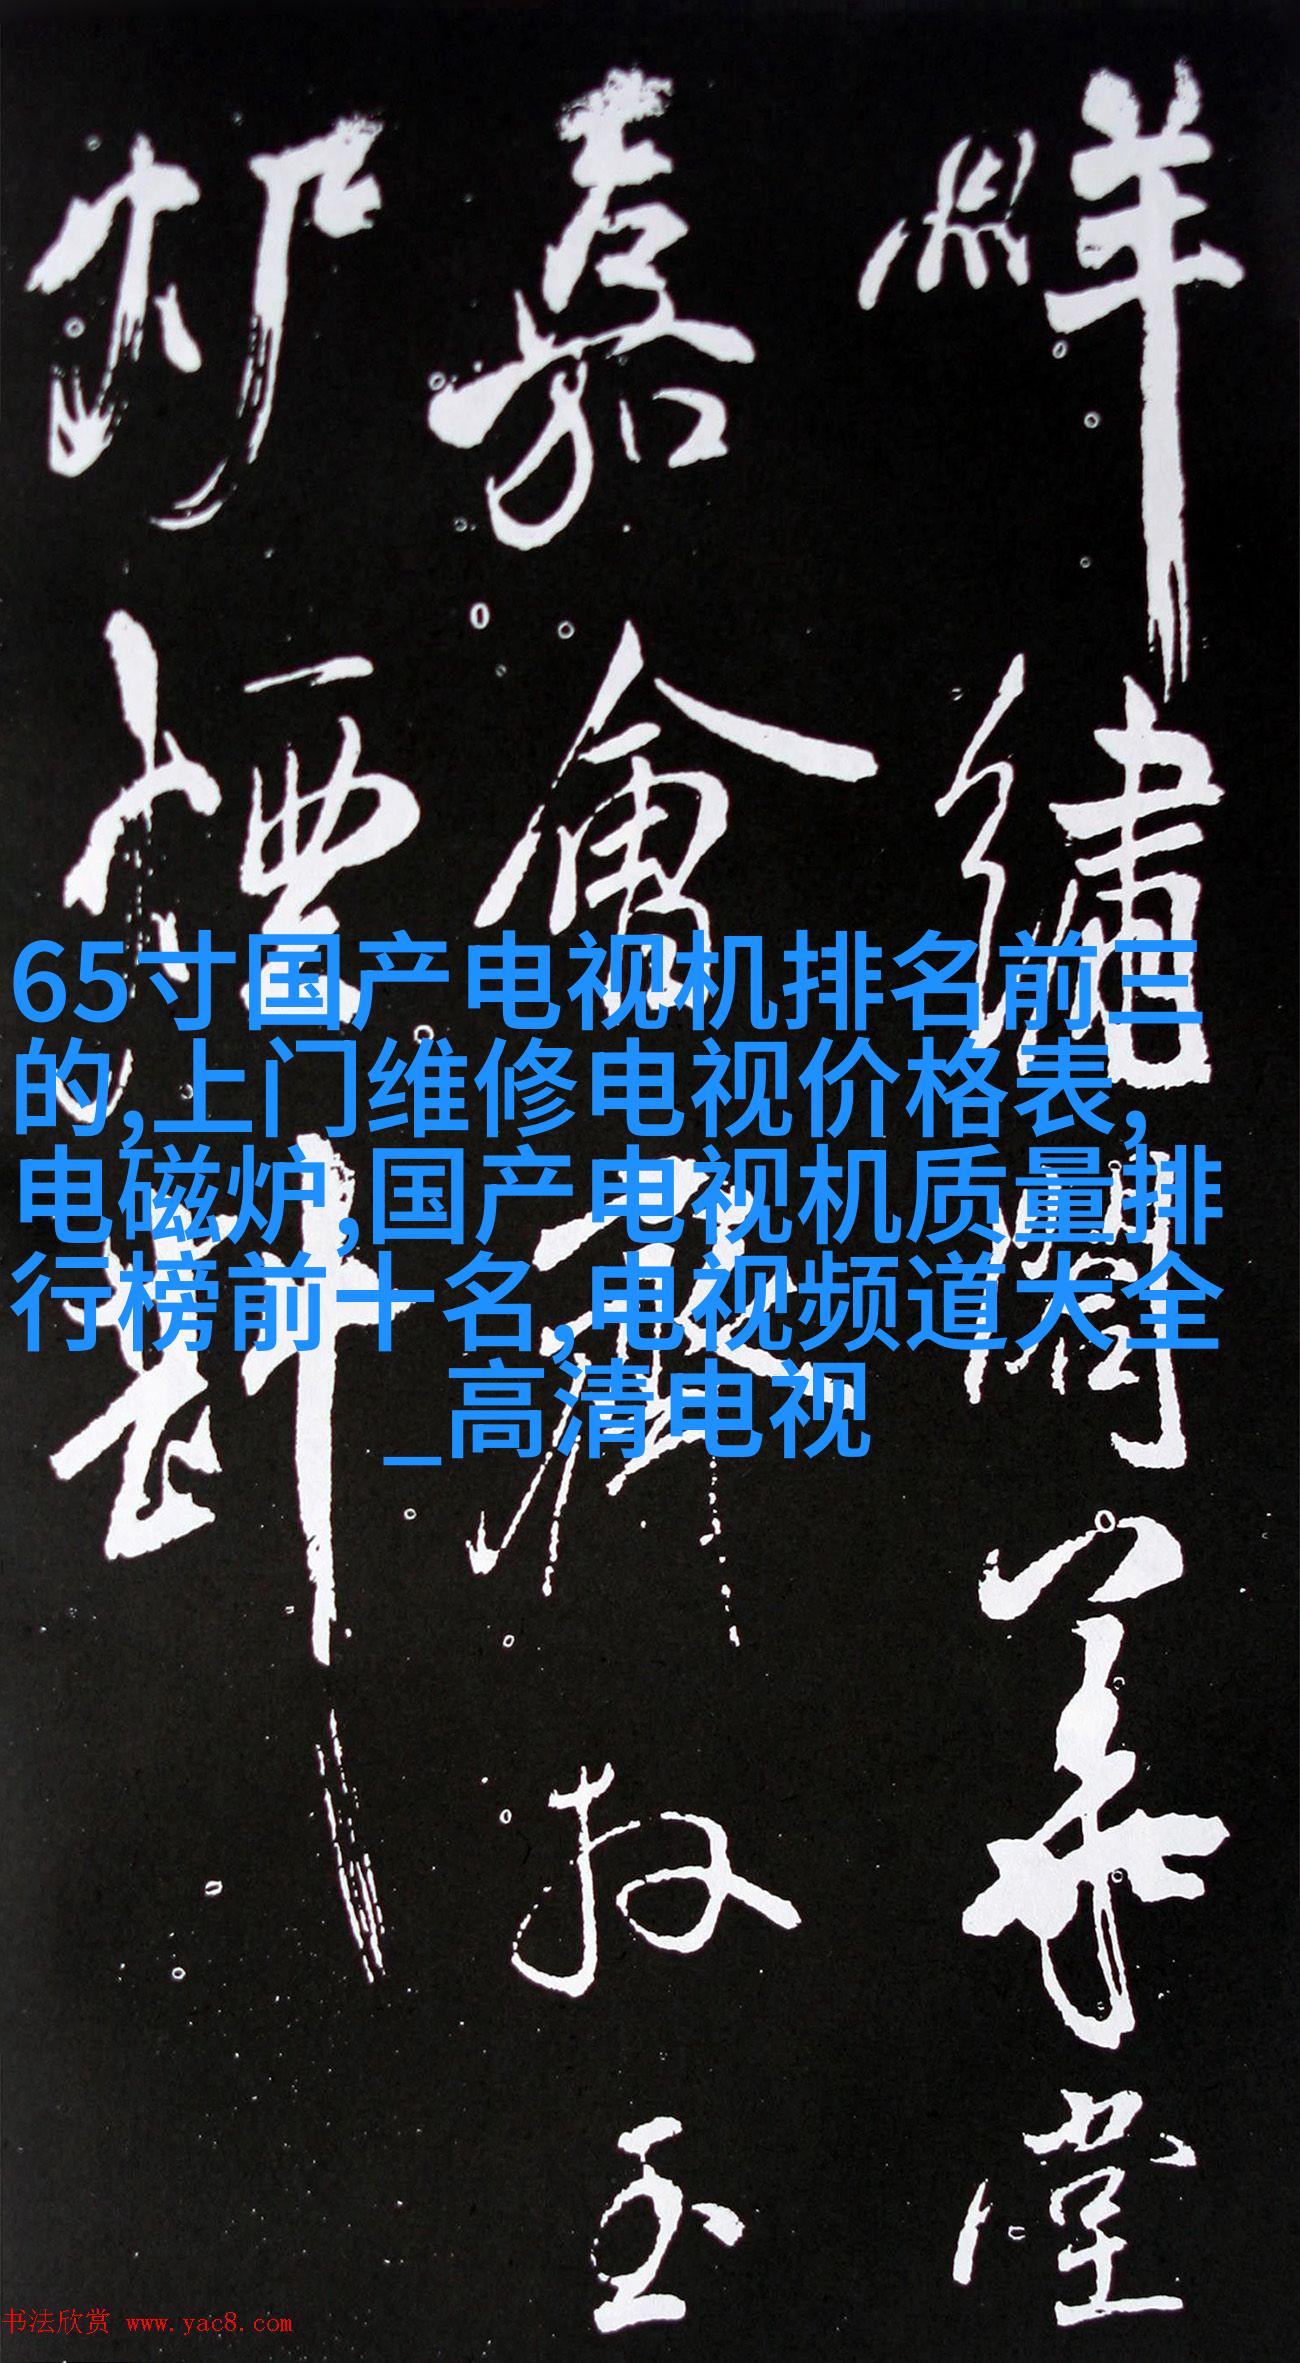 65寸国产电视机排名前三
的,上门维修电视价格表,
电磁炉,国产电视机质量排
行榜前十名,电视频道大全
_高清电视
繡閣華堂
嘉會 玉
书法欣赏 www.yac8.com